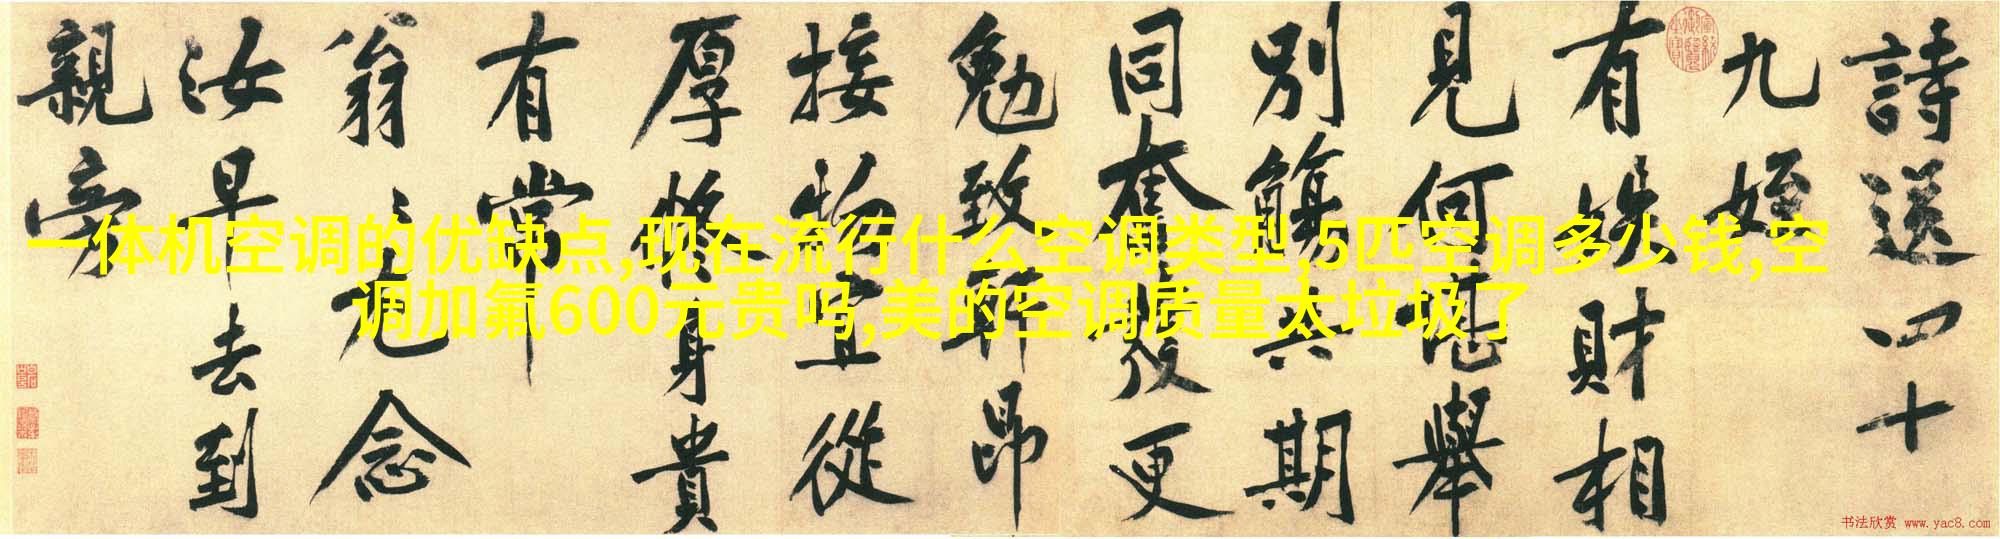 詩送四十
九姪
有財相
見何堪舉
別觴共期
同奮發更
勉致軒昂
接物宜從
厚將身貴
有常
翁尤念
汝早去到
親旁
一体机空调的优缺点,现在流行什么空调类型,5匹空调多少钱,空
调加氟600元贵吗,美的空调质量太垃圾了
书法欣赏 www.yac8.com